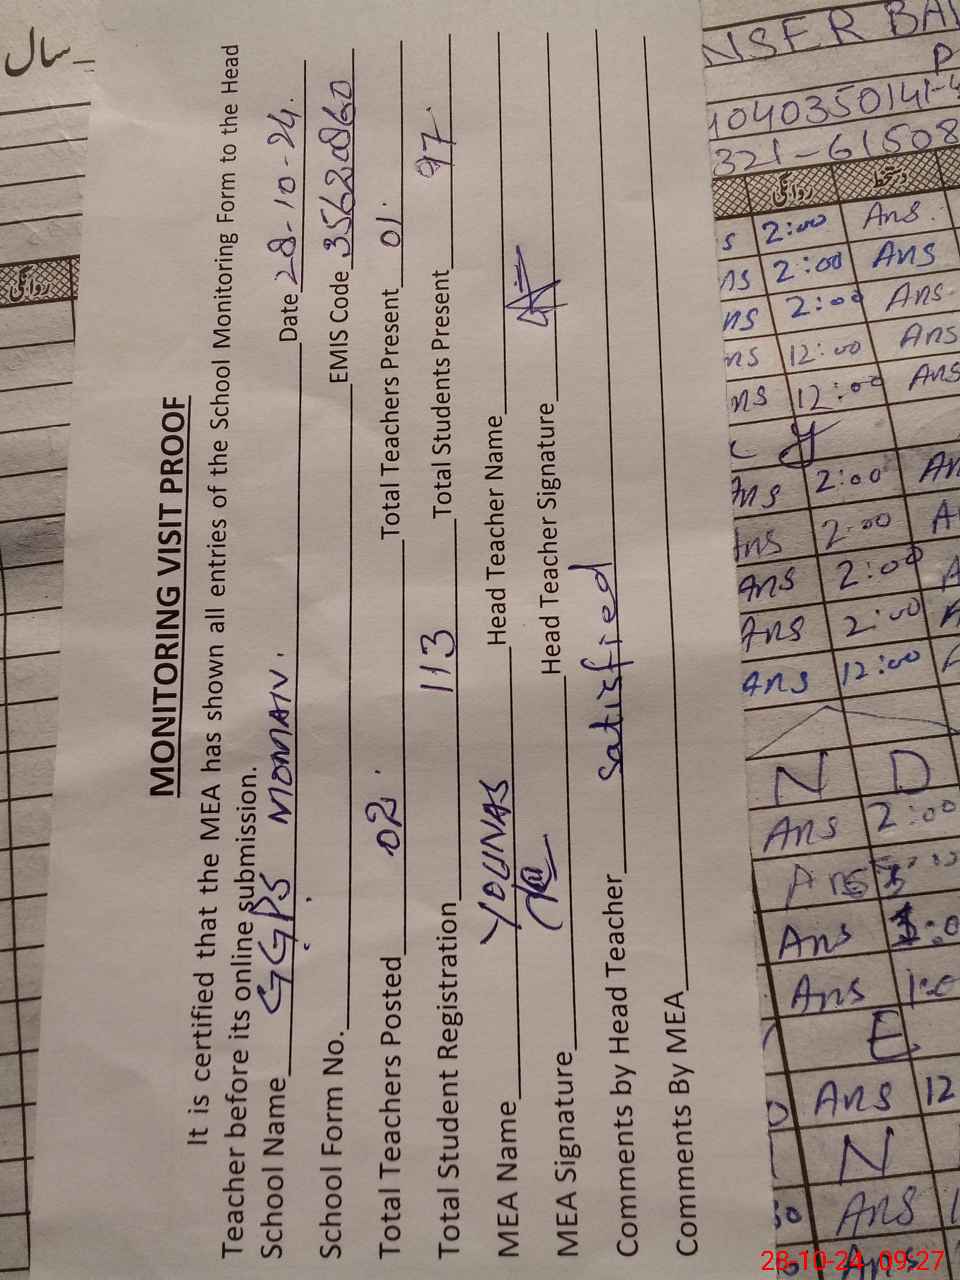 MONITORING VISIT PROOF
It is certified that the MEA has shown all entries of the School Monitoring Form to the Head
Teacher before its online submission.
School Name GGPS MOMAIN. Date 28-10-24.
School Form No. EMIS Code 35620860
Total Teachers Posted 02. Total Teachers Present 01.
Total Student Registration 113 Total Students Present 97.
MEA Name YOUNAS Head Teacher Name
MEA Signature Head Teacher Signature
Comments by Head Teacher satisfied
Comments By MEA
سال
روانگی
NSER BA
P
1040350141-4
321-61508
روانگی دستخط
s 2:00 Ans.
ns 2:00 Ans
ns 2:00 Ans.
ns 12:00 Ans
ns 12:00 Ans
Ans 2:00 An
Ans 2:00 A
Ans 2:00 A
Ans 2:00 A
Ans 12:00 A
N D
Ans 2:00
Ans
Ans
Ans
E
Ans 12
N
Ans 1
Ans
28-10-24 09:27